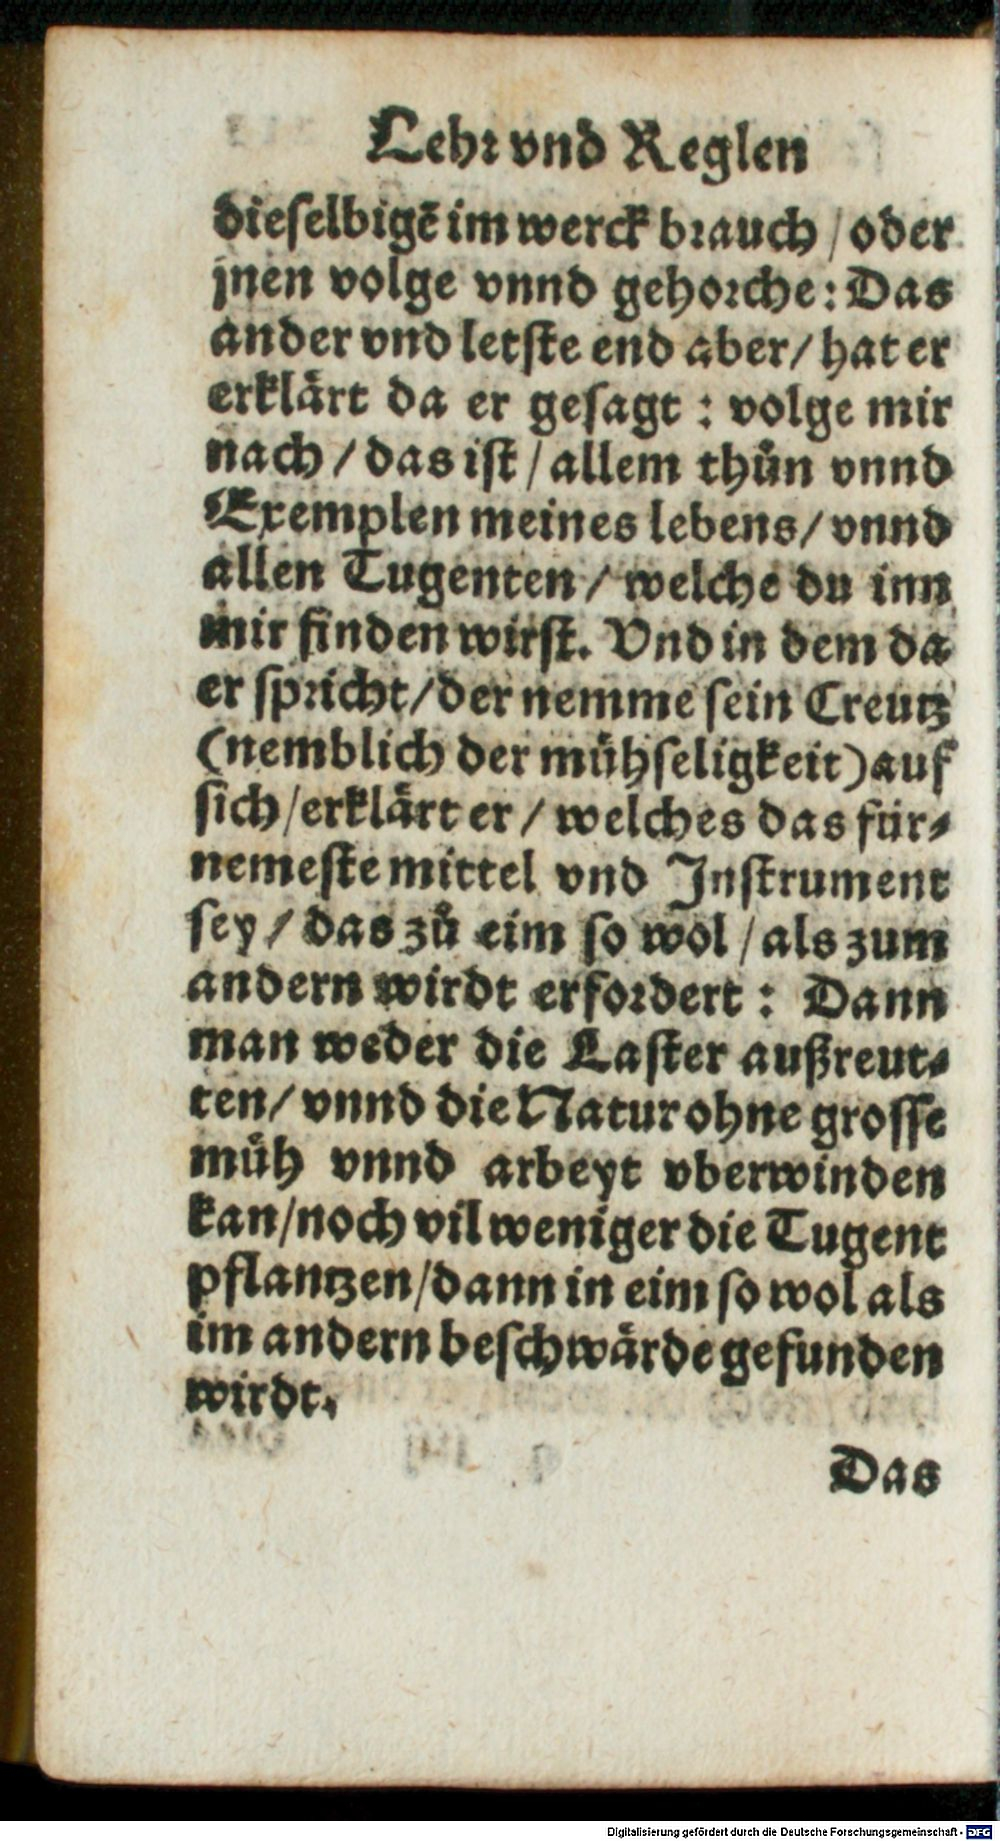 Lehr vnd Reglen
dieselbigē im werck brauch / oder
jnen volge vnnd gehorche: Das
ander vnd letste end aber / hat er
erklärt da er gesagt : volge mir
nach / das ist / allem thůn vnnd
Exemplen meines lebens / vnnd
allen Tugenten / welche du inn
mir finden wirst. Vnd in dem da
er spricht / der nemme sein Creutz
(nemblich der mühseligkeit) auf
sich / erklärt er / welches das für⸗
nemeste mittel vnd Instrument
sey / das zů eim so wol / als zum
andern wirdt erfordert : Dann
man weder die Laster außreut⸗
ten / vnnd die Natur ohne grosse
müh vnnd arbeyt vberwinden
kan / noch vil weniger die Tugent
pflantzen / dann in eim so wol als
im andern beschwärde gefunden
wirdt.
Das
Digitalisierung gefördert durch die Deutsche Forschungsgemeinschaft - DFG